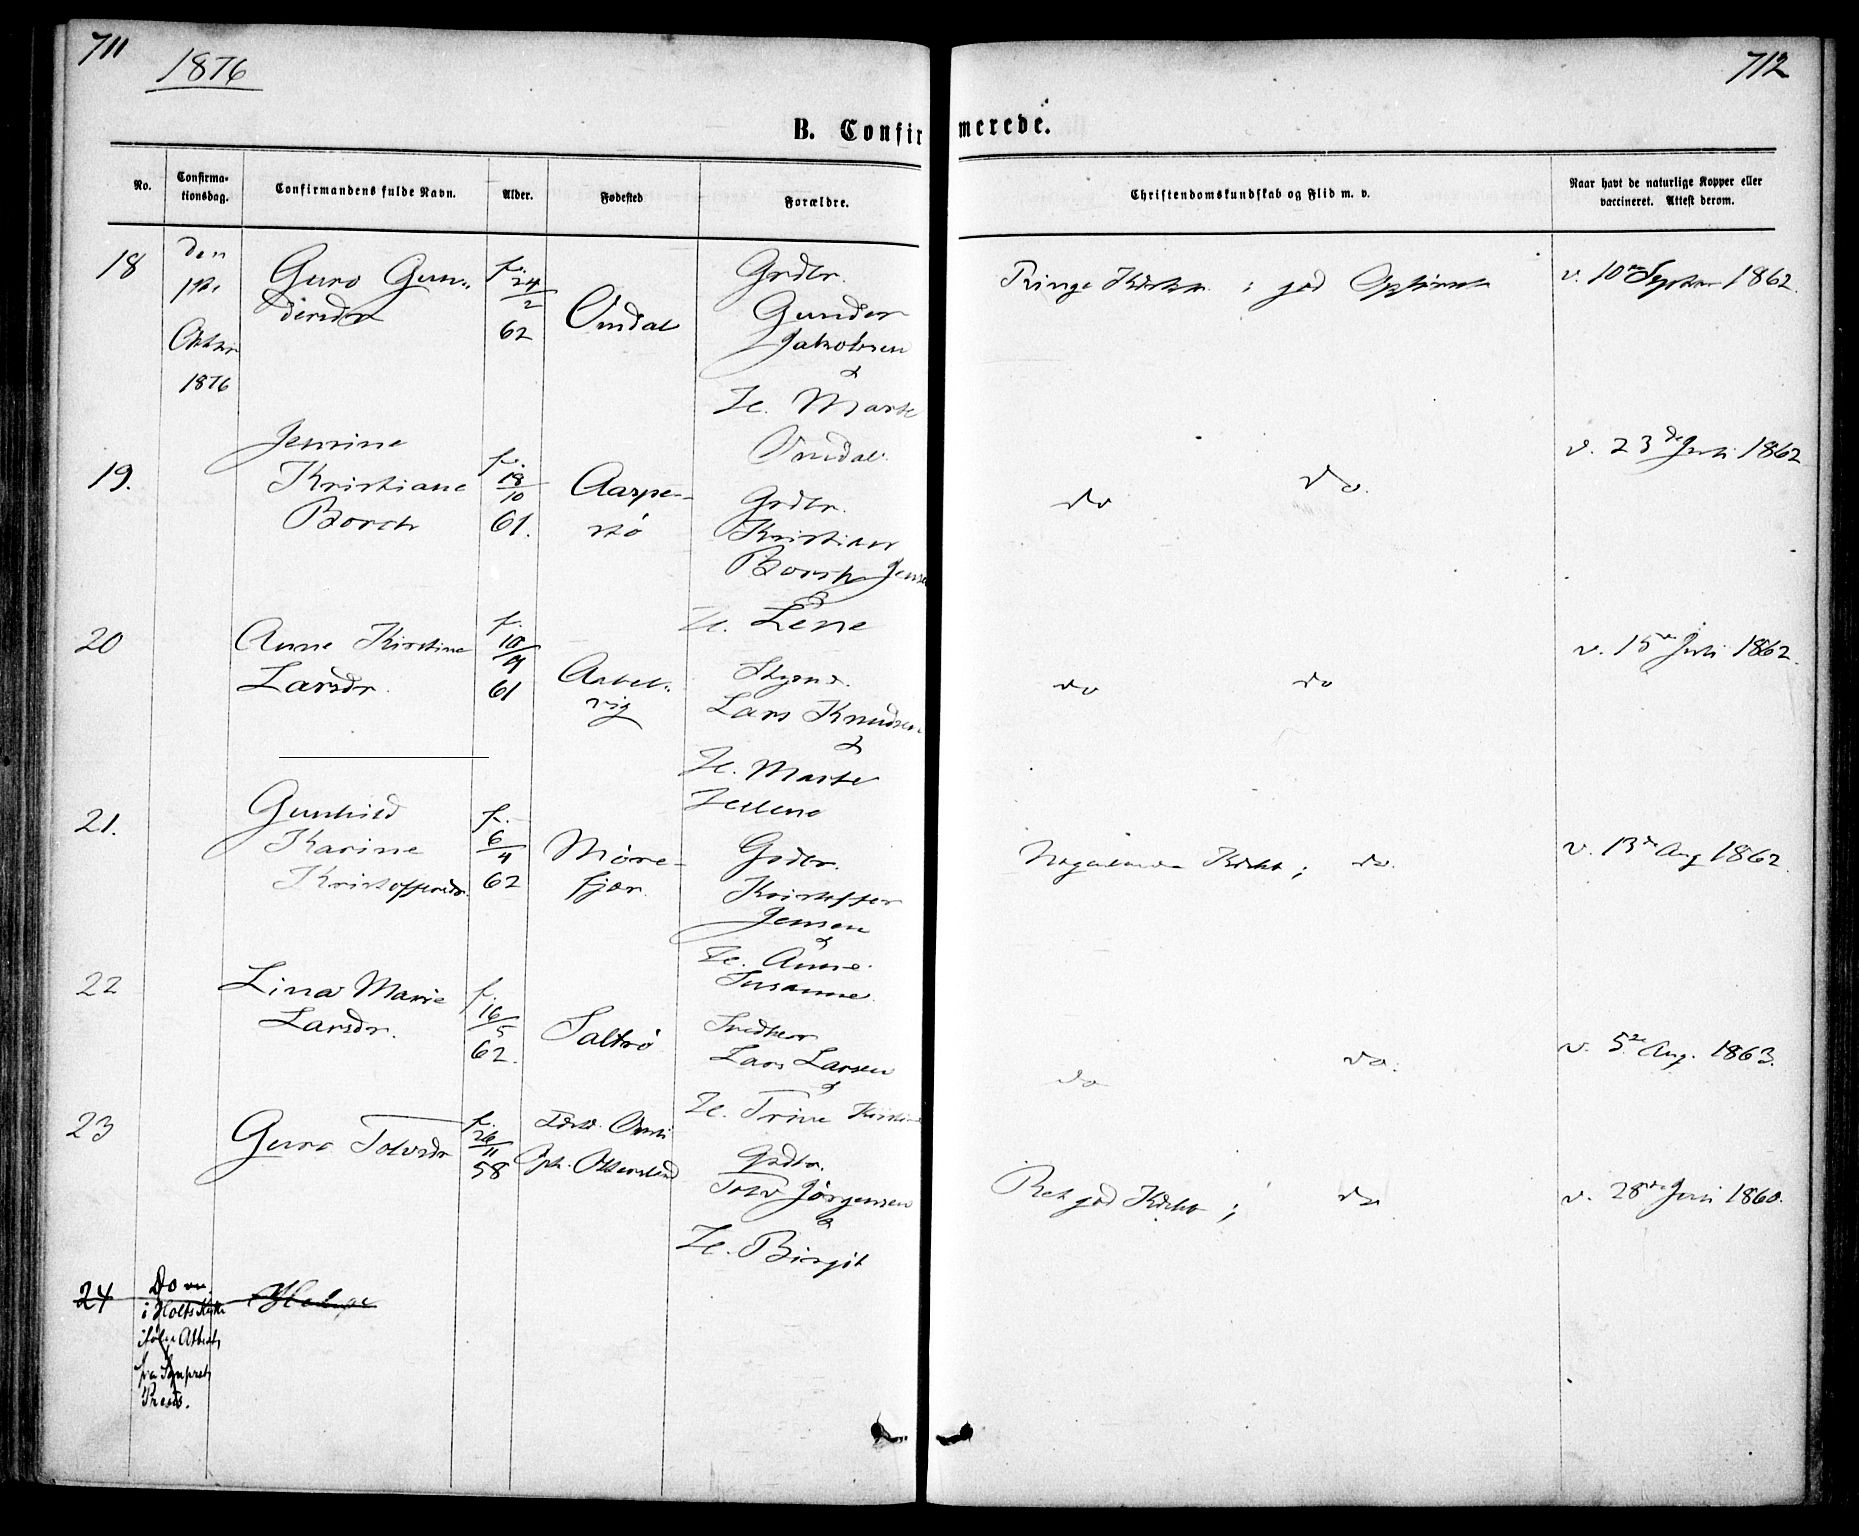 711
1876
712
B. Confirmerede.
No.
Confirma-
tionsdag.
Confirmandens fulde Navn.
Alder.
Fødested
Forældre.
Christendomskundskab og Flid m. v.
Naar havt de naturlige Kopper eller
vaccineret. Attest derom.
18
den
1ste
Oktbr
1876
Guro Gun-
dersdr
f. 24/2
62
Omdal
Grdbr.
Gunder
Jakobsen
&
H. Marte
Omdal.
Ringe Kdskb. ; god Opførsel
v. 10de Septbr 1862.
19.
Jensine
Kristiane
Borch
f.
18/10
61.
Aaspe-
stø
Grdbr.
Kristian
Borch Jensen
&
H. Lene
do
do.
v. 23de Juli 1862
20
Anne Kirstine
Larsdr.
f.
10/9
61
vig
Lars Knudsen
&
H. Marte
Helene
do
do
v. 15de Juli 1862.
21.
Gunhild
Karine
Kristoffersdr.
f.
6/4
62
Møre-
fjær.
Grdbr.
Kristoffer
Jensen
&
H. Anne
Susanne.
Nogenlunde Kdskb ; do.
v. 13de Aug 1862.
22
Lina Marie
Larsdr.
f.
16/5
62.
Saltrø
Snedker
Lars Larsen
&
H. Trine Kirstine
do
do.
v. 5te Aug. 1863.
23
Guro Tolvsdr
f.
26/11
58
Grdbr.
Tolv Jørgensen
&
H. Birgit
Ret god Kdskb ; do
v. 28de Juni 1860.
24
Do
i Holts Kirke
ifølge Attest
fra Sognepræst